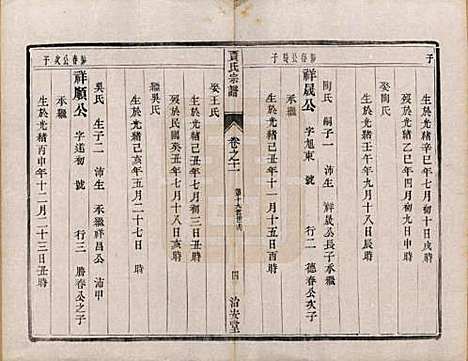 子
生於光緒辛巳年七月初十日戌時
歿於光緒乙巳年七月初四日亥時
娶陶氏
生於光緒壬午年九月十八日辰時
陶氏 嗣子一 沛生 祥晟公長子承繼
承繼
祥晟公 字旭東 號 行二 德春公次子
生於光緒己丑年十一月十五日酉時
勝春公長子
賈氏宗譜
卷之二
四
治安堂
娶王氏
生於光緒癸巳年七月初三日
歿於民國癸丑年七月十八日亥時
繼吳氏
生於光緒己亥年五月二十七日 時
吳氏 生子二 沛生 承繼祥昌公 沛甲
祥顧公 字述初 號 行三 勝春公之子
承繼
生於光緒丙申年十二月二十三日亥時
勝春公次子